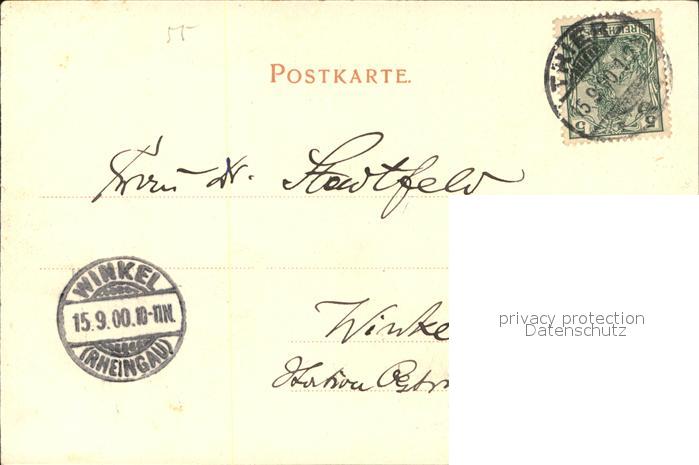 55
POSTKARTE.
REICHSPOST
TRIER
15.9.00.1
5 5
Frau Dr. Stadtfeld
WINKEL
15.9.00.10-11N.
(RHEINGAU)
Winke
Station Oestr
privacy protection
Datenschutz